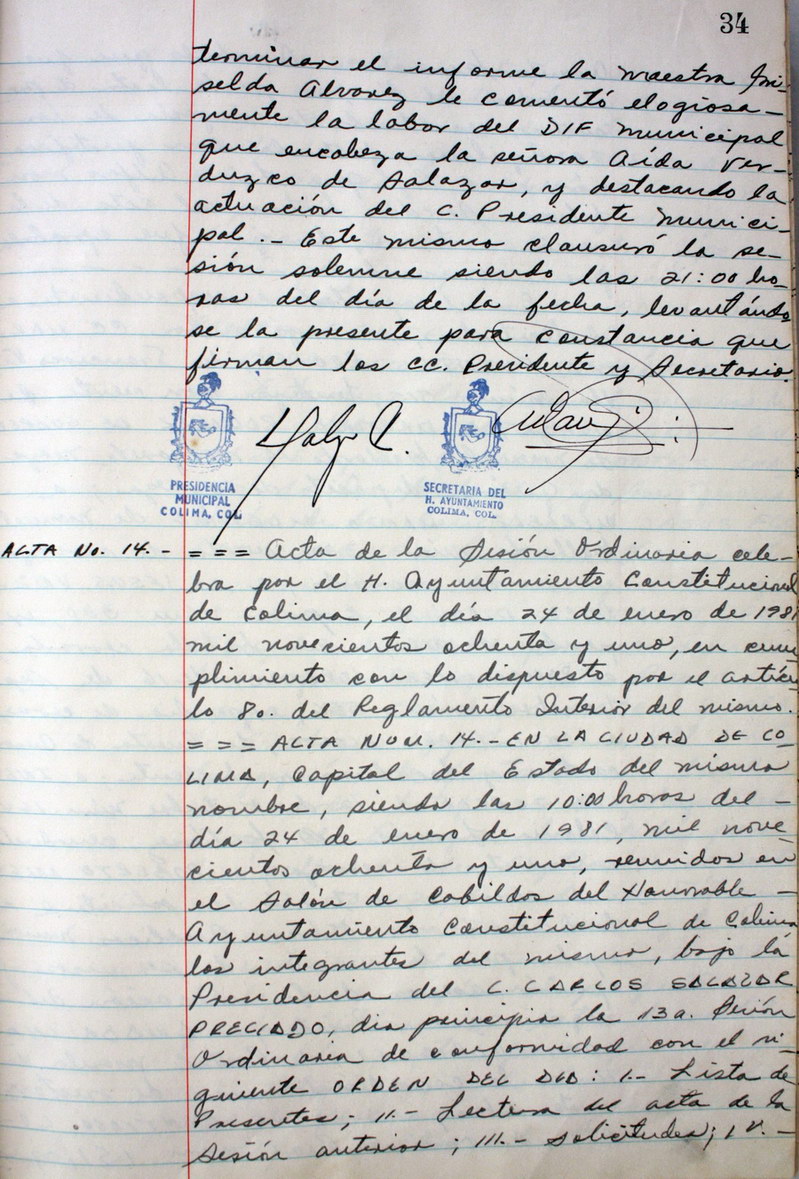 34
terminar el informe la maestra Gri-
selda Alvarez le comentó elogiosa-
mente la labor del DIF municipal
que encabeza la señora Aída Ver-
duzco de Salazar, y destacando la
actuación del C. Presidente munici-
pal.- Este mismo clausuró la se-
sión solemne siendo las 21:00 ho-
ras del día de la fecha, levantándo
se la presente para constancia que
firman los CC. Presidente y Secretario.
PRESIDENCIA
MUNICIPAL
COLIMA, COL.
SECRETARIA DEL
H. AYUNTAMIENTO
COLIMA, COL.
ACTA No. 14.- = = = Acta de la Sesión Ordinaria cele-
bra por el H. Ayuntamiento Constitucional
de Colima, el día 24 de enero de 1981
mil novecientos ochenta y uno, en cum
plimiento con lo dispuesto por el artícu
lo 8o. del Reglamento Interior del mismo.
= = = ACTA NUM. 14.- EN LA CIUDAD DE CO-
LIMA, Capital del Estado del mismo
nombre, siendo las 10:00 horas del -
día 24 de enero de 1981, mil nove-
cientos ochenta y uno, reunidos en
el Salón de Cabildos del Honorable -
Ayuntamiento Constitucional de Colima
los integrantes del mismo, bajo la
Presidencia del C. CARLOS SALAZAR
PRECIADO, dio principio la 13a. Sesión
Ordinaria de conformidad con el si-
guiente ORDEN DEL DIA: I.- Lista de
Presentes; II.- Lectura del acta de la
Sesión anterior; III.- Solicitudes; IV.-